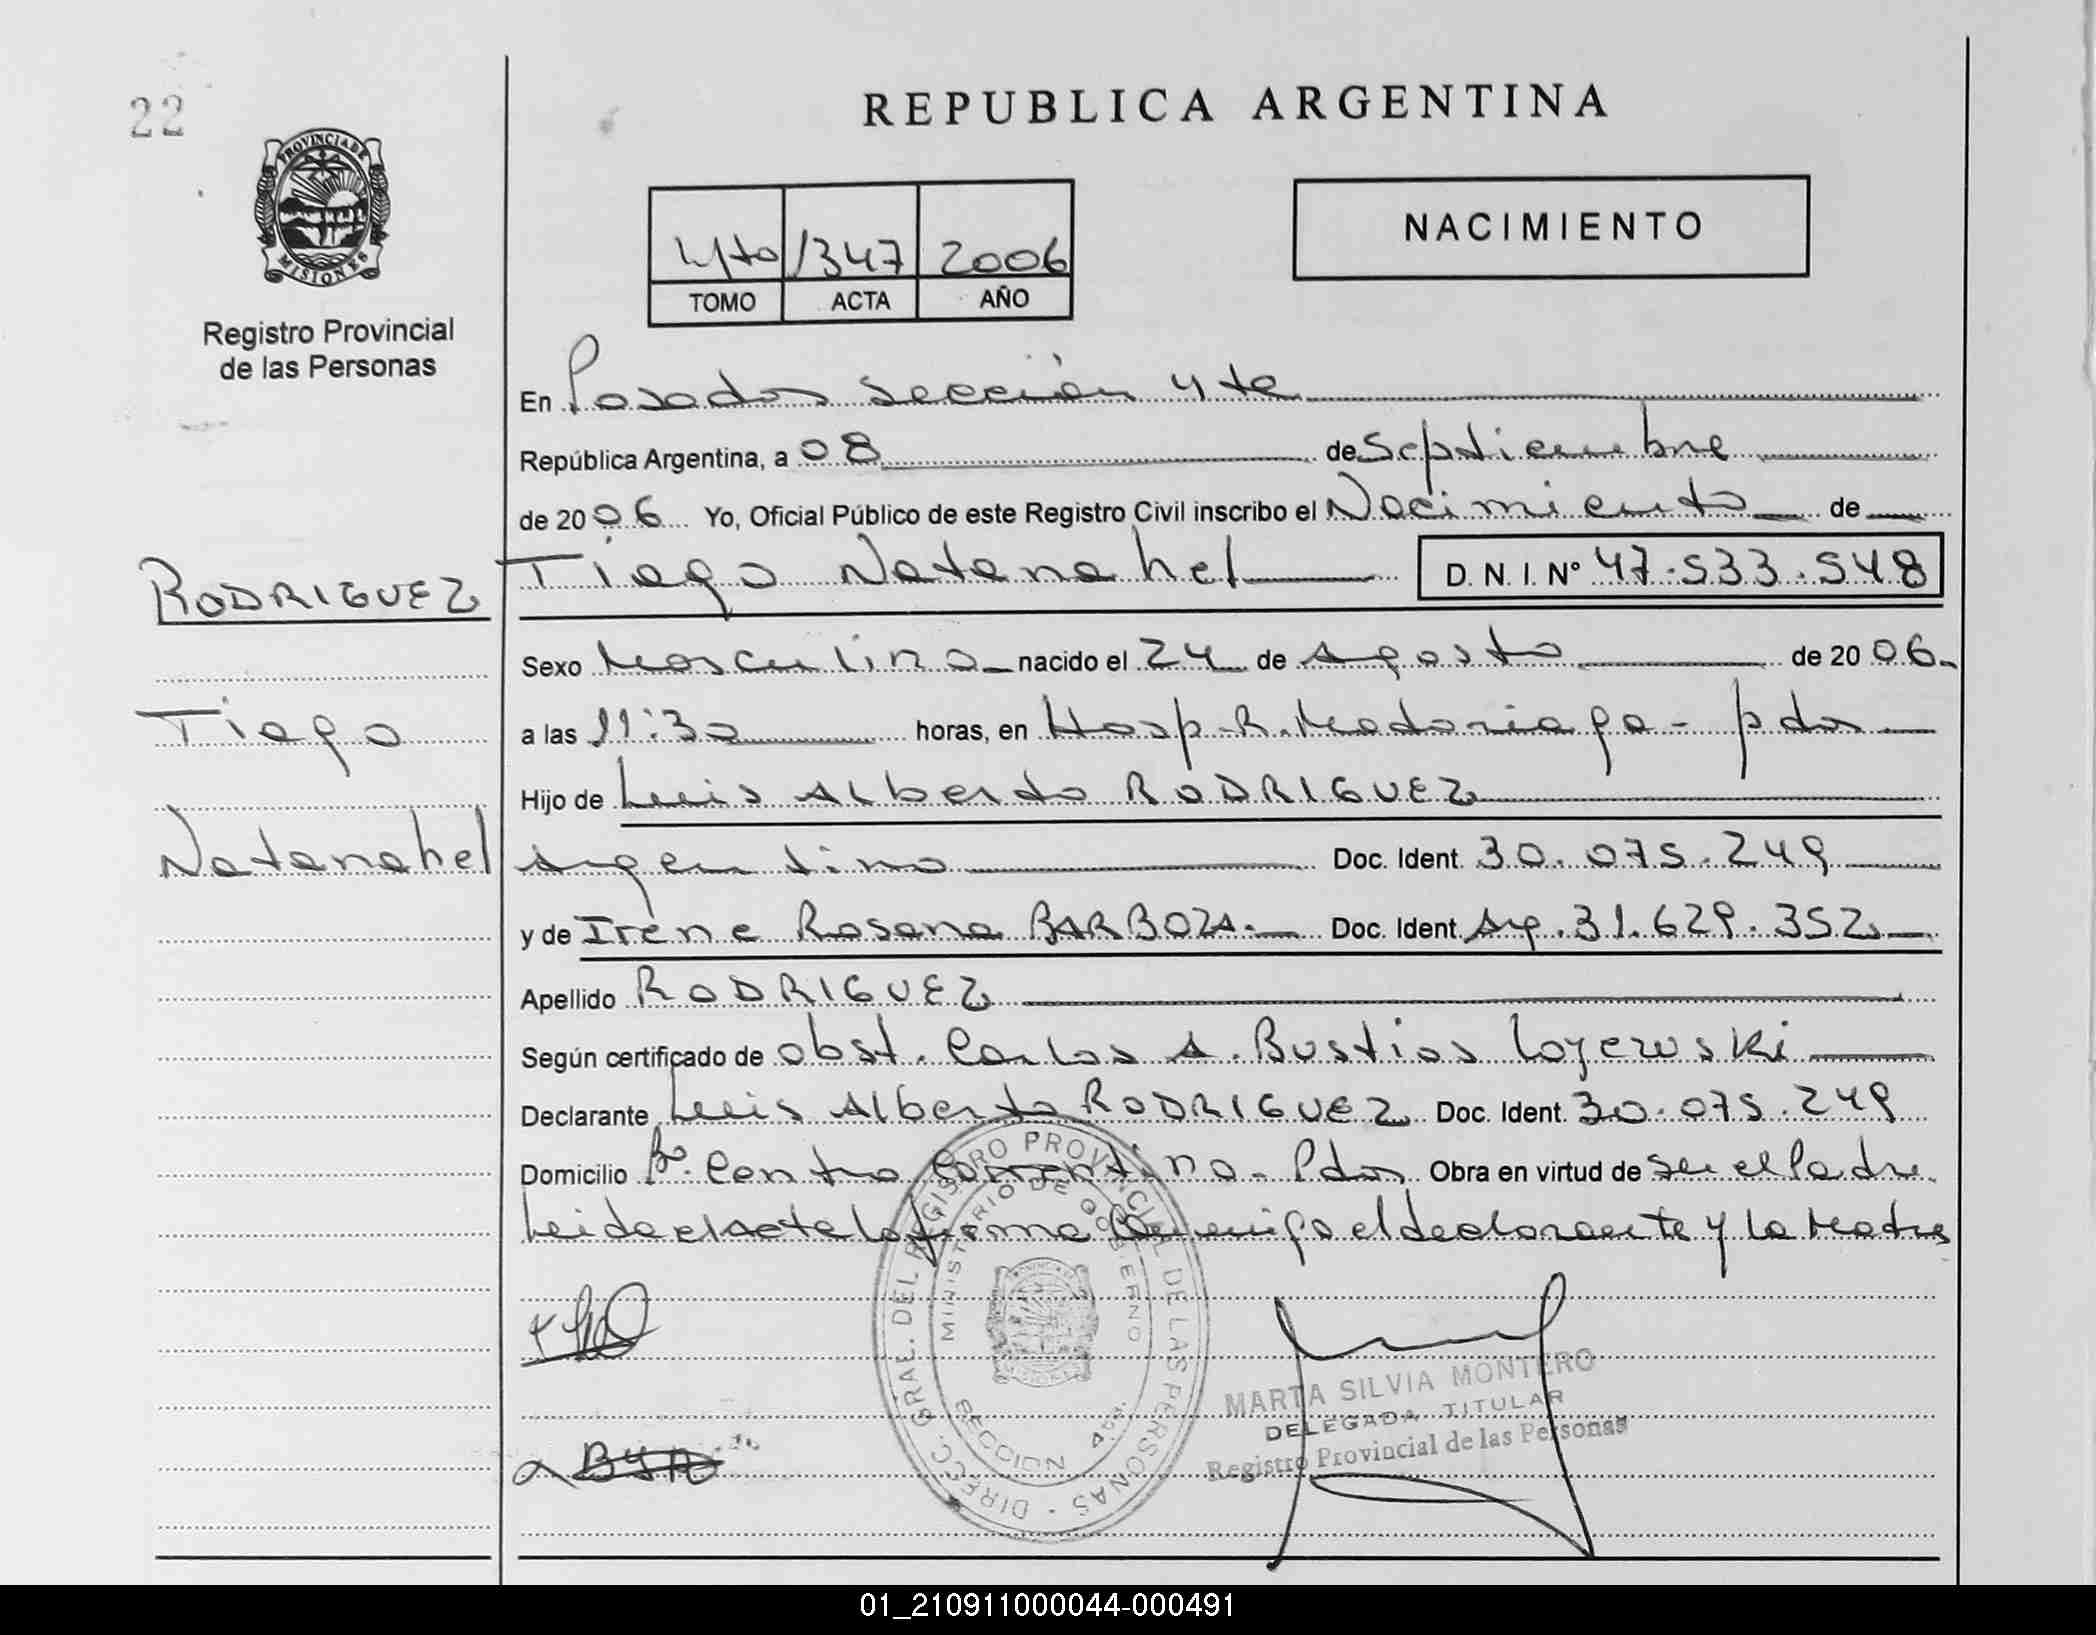 22
REPUBLICA ARGENTINA
PROVINCIA DE
MISIONES
Registro Provincial
de las Personas
4to 1347 2006
TOMO ACTA AÑO
NACIMIENTO
En Posadas Sección 4ta
República Argentina, a 08 de Septiembre
de 2006 Yo, Oficial Público de este Registro Civil inscribo el Nacimiento de
RODRIGUEZ
Tiago Natanahel D. N. I. Nº 47.533.548
Sexo Masculino nacido el 24 de Agosto de 2006.
Tiago
a las 11:30 horas, en Hosp. R. Madariaga - pdas
Hijo de Luis Alberto RODRIGUEZ
Natanahel
Argentino Doc. Ident. 30.075.249
y de Irene Rosana BARBOZA. Doc. Ident. Arg. 31.629.352
Apellido RODRIGUEZ
Según certificado de obst. Carlos A. Bustios
Declarante Luis Alberto RODRIGUEZ Doc. Ident. 30.075.249
Domicilio Bº. Centro Correntino - Pdas Obra en virtud de ser el Padre
Leida el acta la firma Conmigo el declarante y la Madre
DIRECC. GRAL. DEL REGISTRO PROVINCIAL DE LAS PERSONAS
MINISTERIO DE GOBIERNO
SECCION 4ta.
MARTA SILVIA MONTERO
DELEGADA TITULAR
Registro Provincial de las Personas
01_210911000044-000491